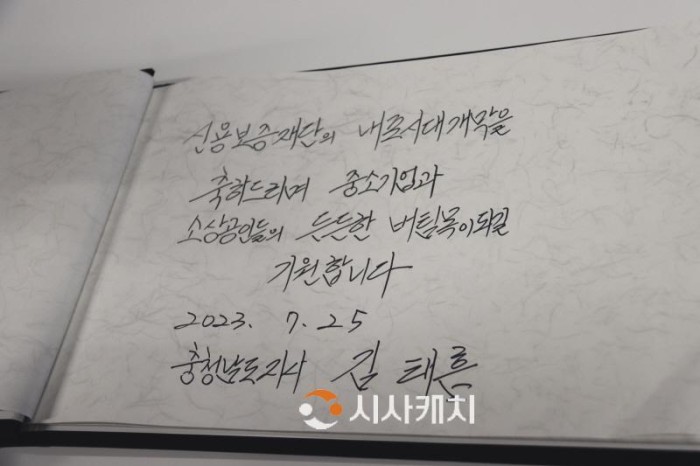 신용보증재단의 내포시대 개막을
축하드리며 중소기업과
소상공인들의 든든한 버팀목이되길
기원합니다
2023. 7. 25
충청남도지사 김태흠
시사캐치